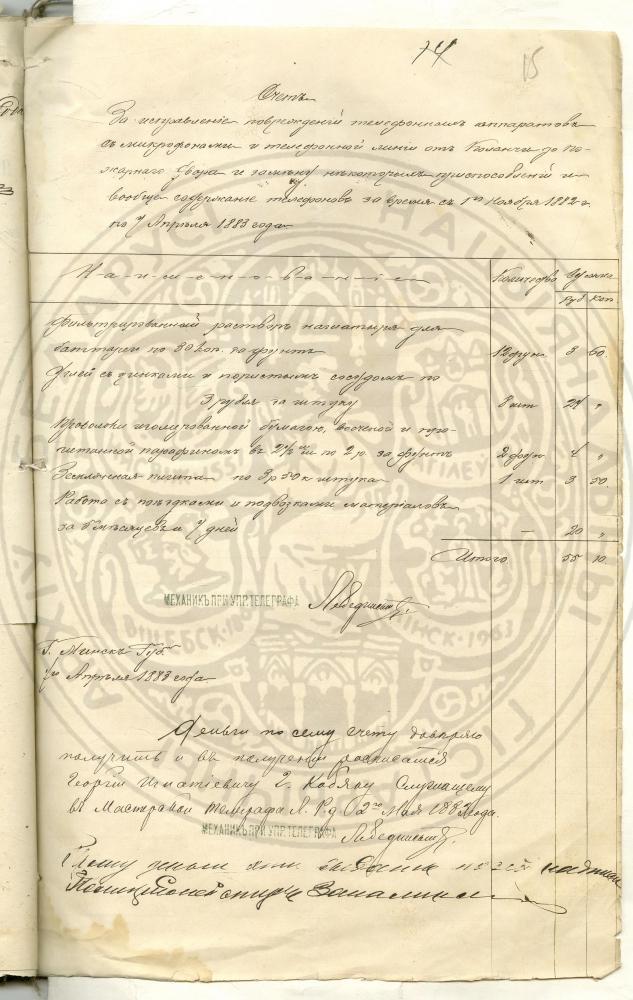 74 15
Счетъ
За исправленіе поврежденій телефонныхъ аппаратовъ
съ микрофонами и телефонной линіи отъ Каланчи до По-
жарнаго Двора и замѣну нѣкоторыхъ приспособленій и
вообще содержаніе телефоновъ за время съ 1го Ноября 1882 г.
по 7 Апрѣля 1883 года
Н-а-и-м-е-н-о-в-а-н-і-е Количество
Руб. Коп.
Фильтрированной растворъ нашатыря для
баттареи по 30 коп. за фунтъ 12 фун 3 60.
Углей съ цинками и пористымъ сосудомъ по
3 рубля за штуку 8 шт 24 "
Проволоки изолированной бумагою, вощеной и про-
питанной парафиномъ въ по 2 р. за фунтъ 2 фун 4 "
по 3 р 50 к штука 1 шт 3 50.
Работа съ поѣздками и подвозками матеріаловъ
за 5 мѣсяцевъ и 7 дней — 20 "
Итого 55 10.
МЕХАНИКЪ ПРИ УПР. ТЕЛЕГРАФА
Г. Минскъ Губ.
Апрѣля 1883 года
Деньги по сему счету довѣряю
получить и въ полученіи росписаться
Георгію Игнатіевичу Г. Кобяку Служащему
въ Мастерской телеграфа Л. Р. ж. д. 2го Мая 1883 года.
МЕХАНИКЪ ПРИ УПР. ТЕЛЕГРАФА